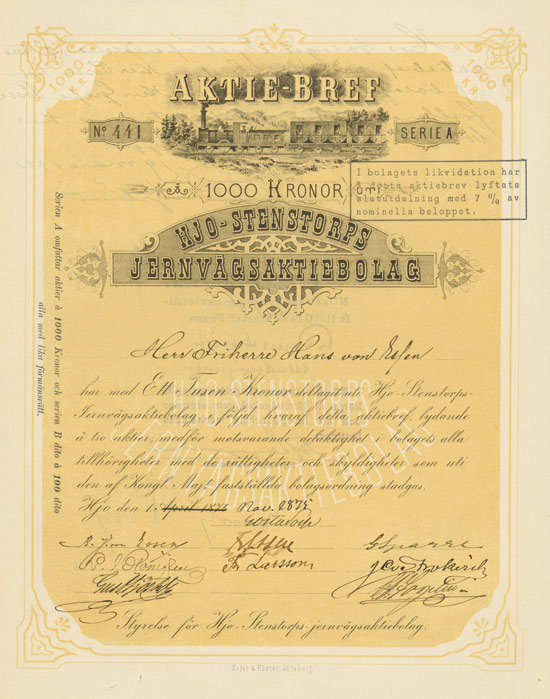 1000 KR.
1000 KR.
AKTIE-BREF
No 441
SERIE A
à 1000 KRONOR
I bolagets likvidation har
å detta aktiebrev lyftats
slututdelning med 7 % av
nominella beloppet.
HJO-STENSTORPS
JERNVÄGSAKTIEBOLAG
Herr Friherre Hans von Essen
har med Ett Tusen Kronor deltagit uti Hjo-Stenstorps-
Jernvägsaktiebolag, i följd hvaraf detta aktiebref, lydande
å tio aktier, medför motsvarande delaktighet i bolagets alla
tillhörigheter med de rättigheter och skyldigheter som uti
den af Kongl. Maj:t fastställda bolagsordning stadgas.
Hjo den 1. April 1874 Nov. 1875
Fr Larsson
G Sparre
Styrelse för Hjo-Stenstorps-jernvägsaktiebolag.
Serien A omfattar aktier à 1000 Kronor och serien B dito à 100 dito
alla med lika förmånsrätt.
HJO-STENSTORPS
JERNVÄGSAKTIEBOLAG
Göteborg.